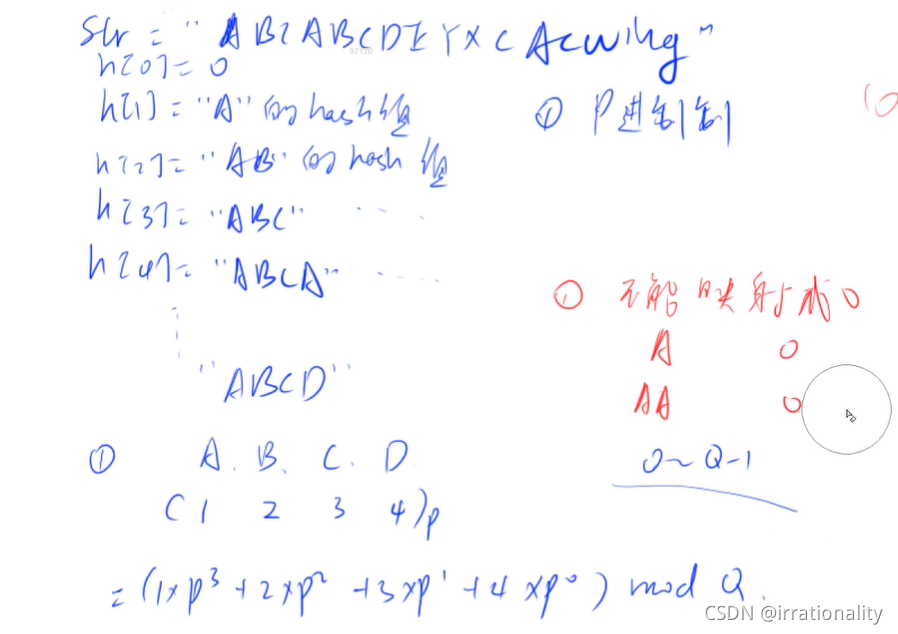 Str = "ABCABCDEYXCAcwing"
h[0] = 0
h[1] = "A" 的hash值
① P进制制
10
h[2] = "AB" 的hash值
h[3] = "ABC" ....
h[4] = "ABCA" ....
① 不能映射成0
A 0
AA 0
"ABCD"
① A. B. C. D
0~Q-1
(1 2 3 4)p
= (1×p³ + 2×p² + 3×p¹ + 4×p⁰) mod Q.
CSDN @irrationality